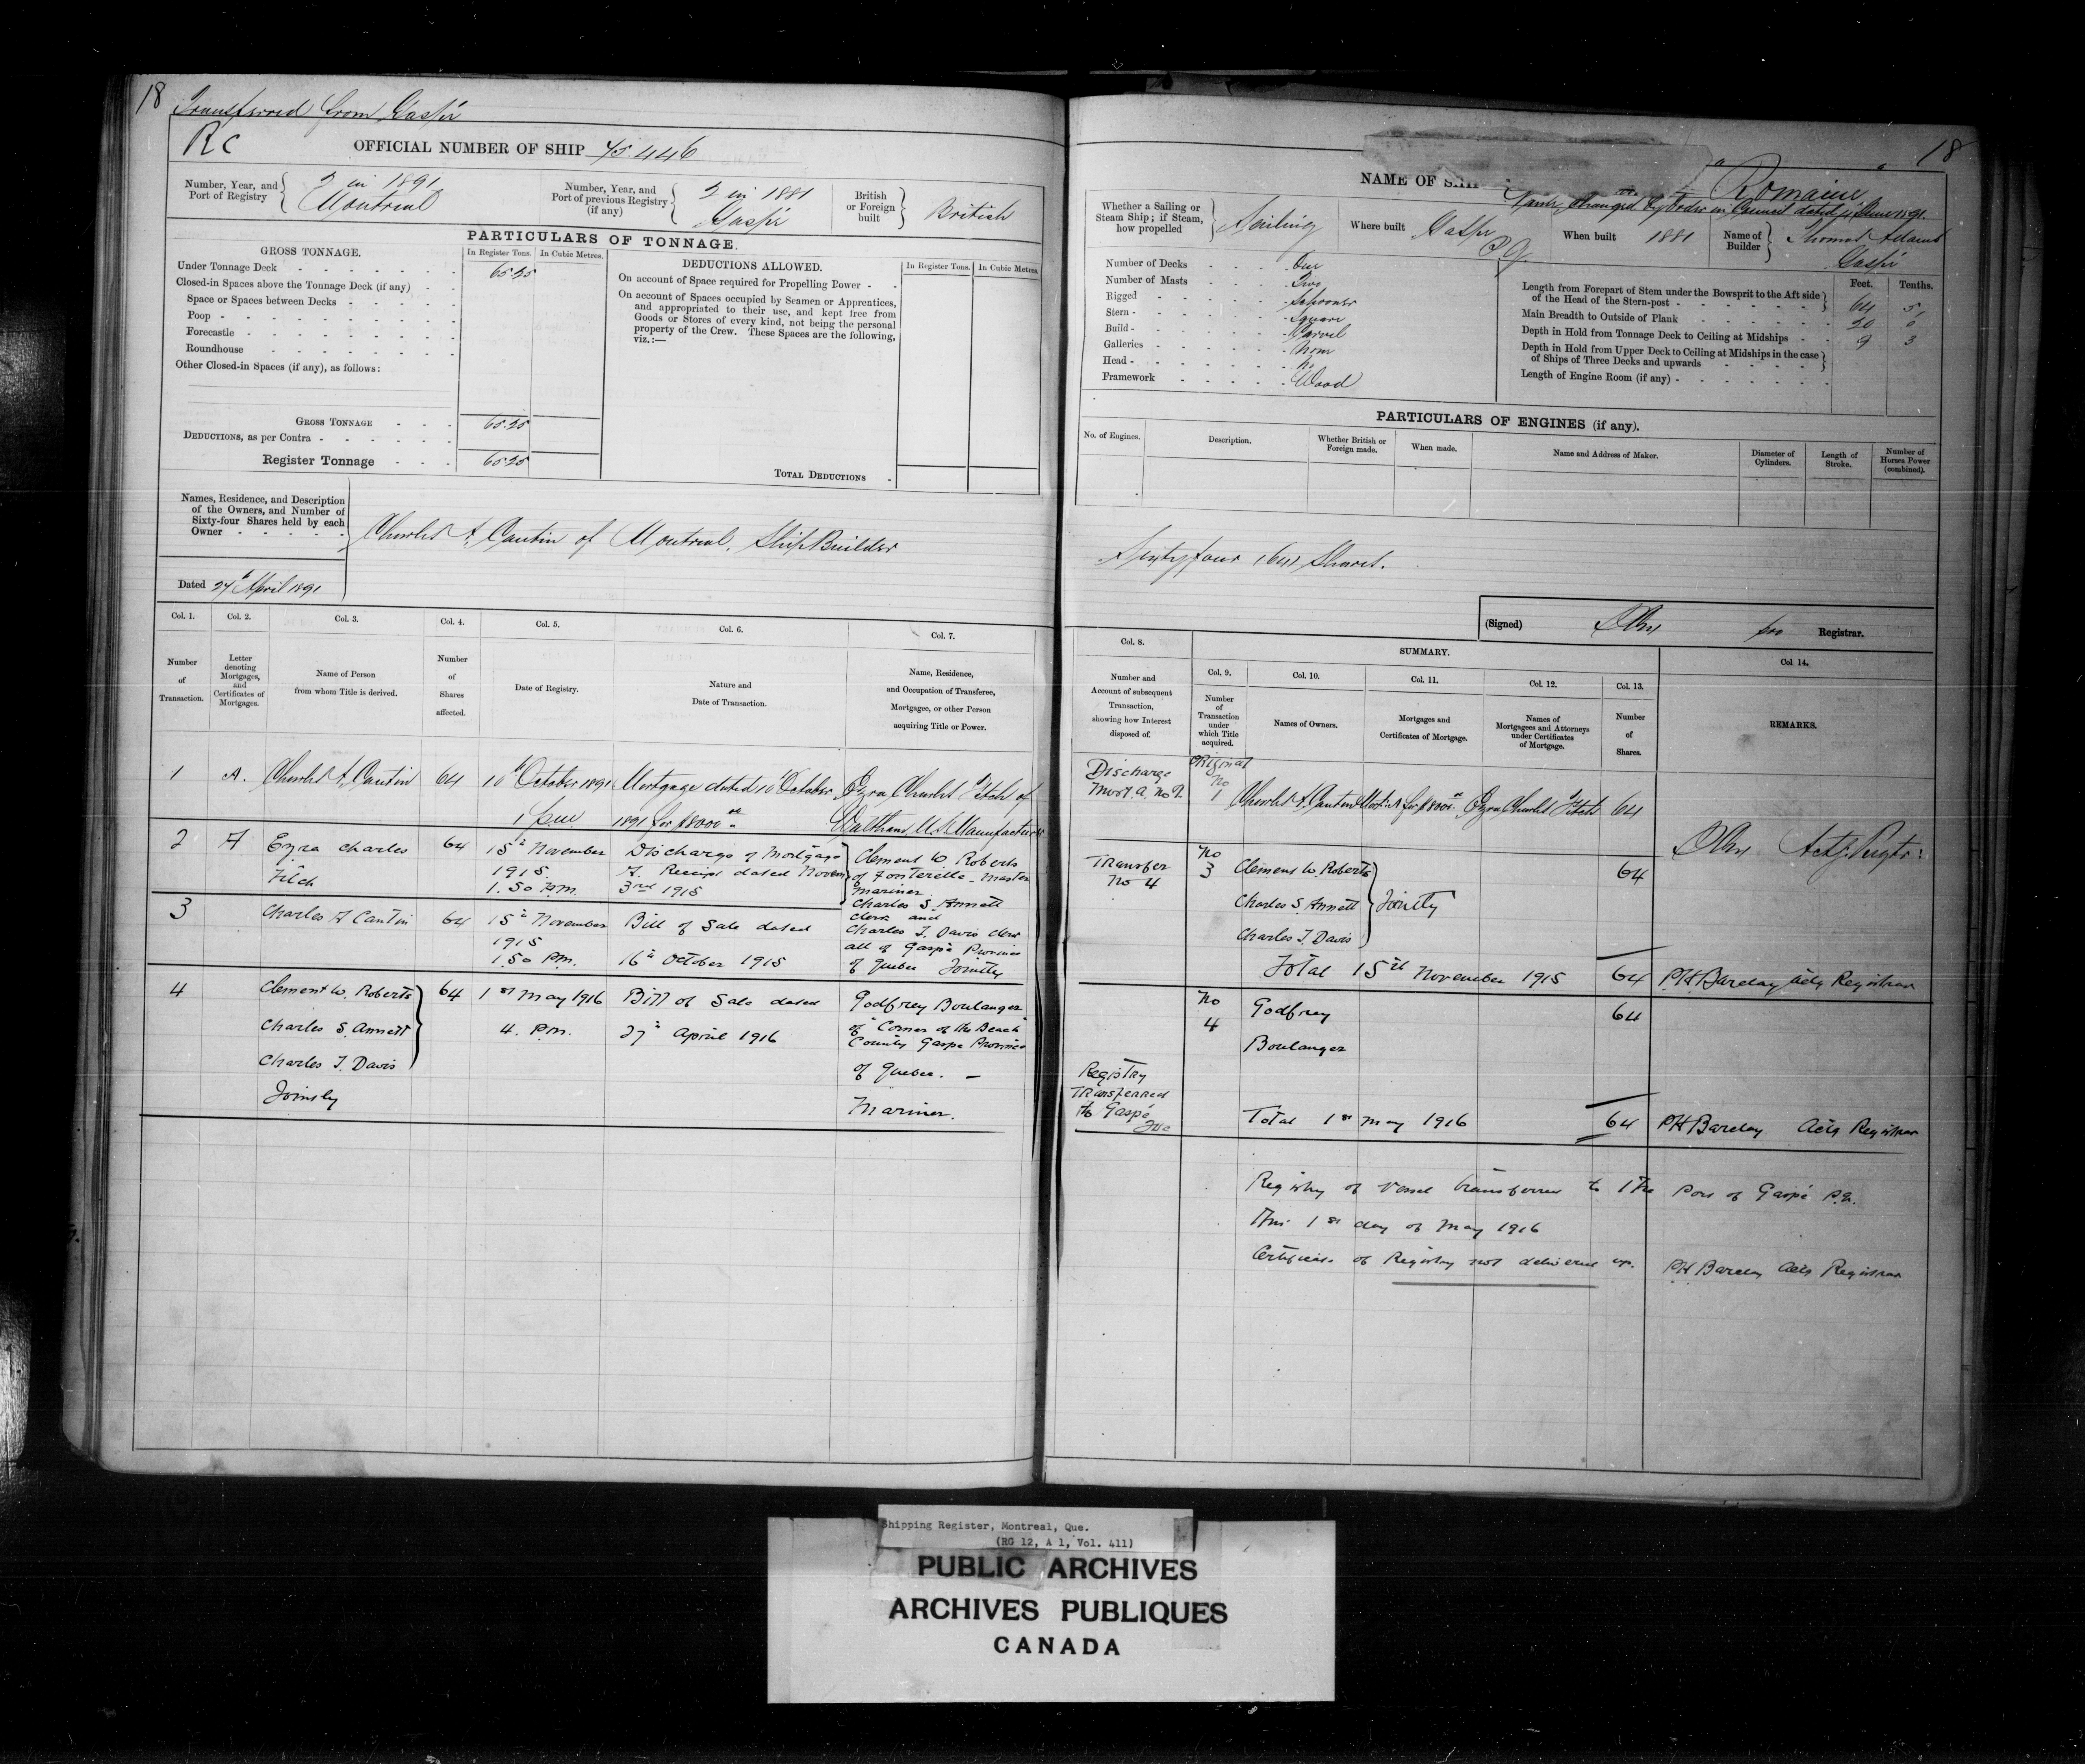 18
Transferred from Gaspé
RC
OFFICIAL NUMBER OF SHIP 75.446
Number, Year, and
Port of Registry
2 in 1891
Montreal
Number, Year, and
Port of previous Registry
(if any)
2 in 1881
Gaspé
British
or Foreign
built
British
PARTICULARS OF TONNAGE.
GROSS TONNAGE.
In Register Tons.
In Cubic Metres.
Under Tonnage Deck
65.25
Closed-in Spaces above the Tonnage Deck (if any)
Space or Spaces between Decks
Poop
Forecastle
Roundhouse
Other Closed-in Spaces (if any), as follows:
GROSS TONNAGE
65.25
DEDUCTIONS, as per Contra
Register Tonnage
65.25
DEDUCTIONS ALLOWED.
In Register Tons.
In Cubic Metres.
On account of Space required for Propelling Power
On account of Spaces occupied by Seamen or Apprentices,
and appropriated to their use, and kept free from
Goods or Stores of every kind, not being the personal
property of the Crew. These Spaces are the following,
viz.:—
TOTAL DEDUCTIONS
Names, Residence, and Description
of the Owners, and Number of
Sixty-four Shares held by each
Owner
Charles A. Cantin of Montreal, Ship Builder
Dated 27th April 1891
Col. 1.
Number
of
Transaction.
Col. 2.
Letter
denoting
Mortgages,
and
Certificates of
Mortgages.
Col. 3.
Name of Person
from whom Title is derived.
Col. 4.
Number
of
Shares
affected.
Col. 5.
Date of Registry.
Col. 6.
Nature and
Date of Transaction.
Col. 7.
Name, Residence,
and Occupation of Transferee,
Mortgagee, or other Person
acquiring Title or Power.
1 A. Charles A. Cantin 64 10th October 1891 Mortgage dated 10th October Ezra Charles Fitch of
1 p.m. 1891 for $8000.00 Waltham U.S. Manufacturer
2 A Ezra Charles 64 15th November Discharge of Mortgage Clement W. Roberts
Fitch 1915 A. Receipt dated Novem of Fontenelle Master
1.50 P.M. 3rd 1915 Mariner
3 Charles A Cantin 64 15th November Bill of Sale dated Charles S. Annett
1915 clerk and
1.50 P.M. 16th October 1915 Charles T. Davis clerk
all of Gaspé Province
of Quebec Jointly
4 Clement W. Roberts 64 1st May 1916 Bill of Sale dated Godfrey Boulanger
Charles S. Annett 4. P.M. 27th April 1916 of "Corner of the Beach"
County Gaspe Province
Charles T. Davis of Quebec. —
Jointly Mariner.
18
NAME OF SHIP
"Romaine"
Name changed by Order in Council dated June 1891.
Whether a Sailing or
Steam Ship; if Steam,
how propelled
Sailing
Where built
Gaspé
P.Q.
When built 1881
Name of
Builder
Thomas Adams
Gaspé
Number of Decks One
Number of Masts Two
Rigged Schooner
Stern Square
Build Carvel
Galleries None
Head No
Framework Wood
Feet. Tenths.
Length from Forepart of Stem under the Bowsprit to the Aft side
of the Head of the Stern-post
64 5
Main Breadth to Outside of Plank
20 0
Depth in Hold from Tonnage Deck to Ceiling at Midships
9 3
Depth in Hold from Upper Deck to Ceiling at Midships in the case
of Ships of Three Decks and upwards
Length of Engine Room (if any)
PARTICULARS OF ENGINES (if any).
No. of Engines.
Description.
Whether British or
Foreign made.
When made.
Name and Address of Maker.
Diameter of
Cylinders.
Length of
Stroke.
Number of
Horses Power
(combined).
Sixty four (64) Shares.
(Signed) for Registrar.
Col. 8.
Number and
Account of subsequent
Transaction,
showing how Interest
disposed of.
SUMMARY.
Col. 9.
Number
of
Transaction
under
which Title
acquired.
Col. 10.
Names of Owners.
Col. 11.
Mortgages and
Certificates of Mortgage.
Col. 12.
Names of
Mortgagees and Attorneys
under Certificates
of Mortgage.
Col. 13.
Number
of
Shares.
Col 14.
REMARKS.
Discharge
Mort. A. No 2.
Original
No
1
Charles A. Cantin Mort. A for $8000.00 Ezra Charles Fitch 64
Actg Regtr:
Transfer
No 4
No
3
Clement W. Roberts 64
Charles S. Annett Jointly
Charles T. Davis
Total 15th November 1915 64 PH Barclay Actg Registrar
No
4
Godfrey 64
Boulanger
Registry
Transferred
to Gaspé
Que
Total 1st May 1916 64 PH Barclay Actg Registrar
Registry of Vessel transferred to the Port of Gaspé P.Q.
this 1st day of May 1916
Certificate of Registry not delivered up. PH Barclay Actg Registrar
Shipping Register, Montreal, Que.
(RG 12, A 1, Vol. 411)
PUBLIC ARCHIVES
ARCHIVES PUBLIQUES
CANADA